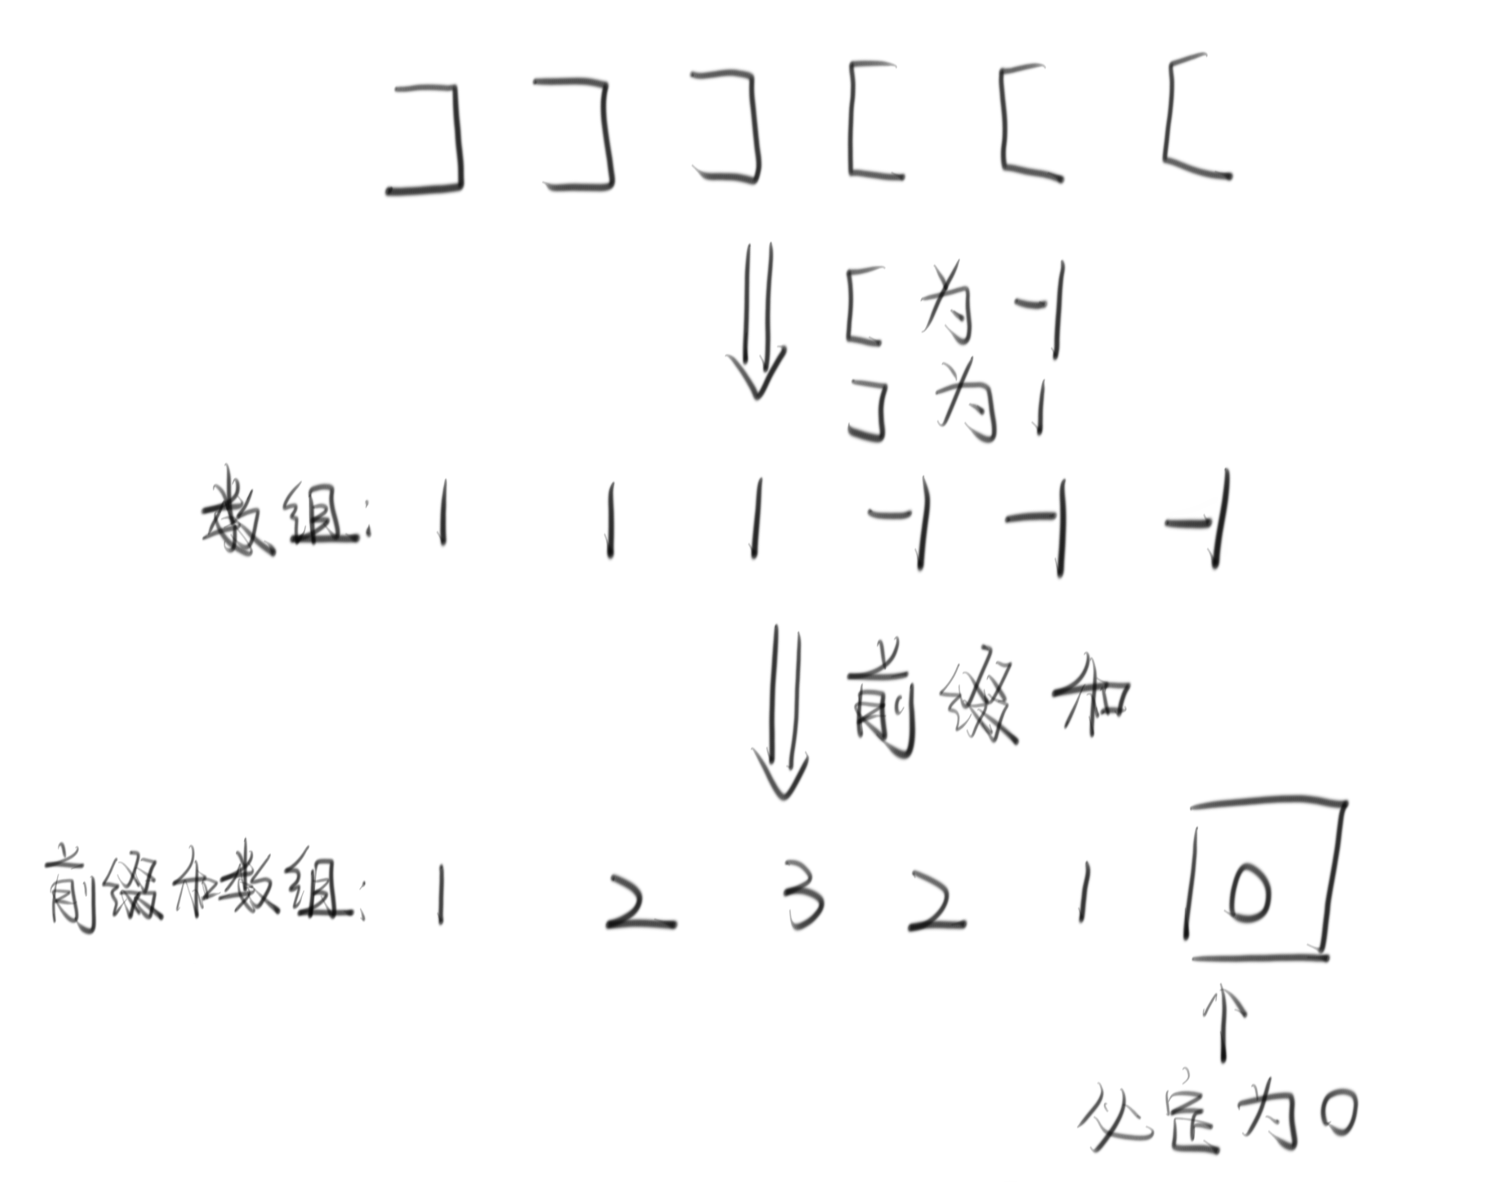 ] ] ] [ [ [
[ 为 -1
] 为 1
数组: 1 1 1 -1 -1 -1
前缀和
前缀和数组: 1 2 3 2 1 0
必定为0